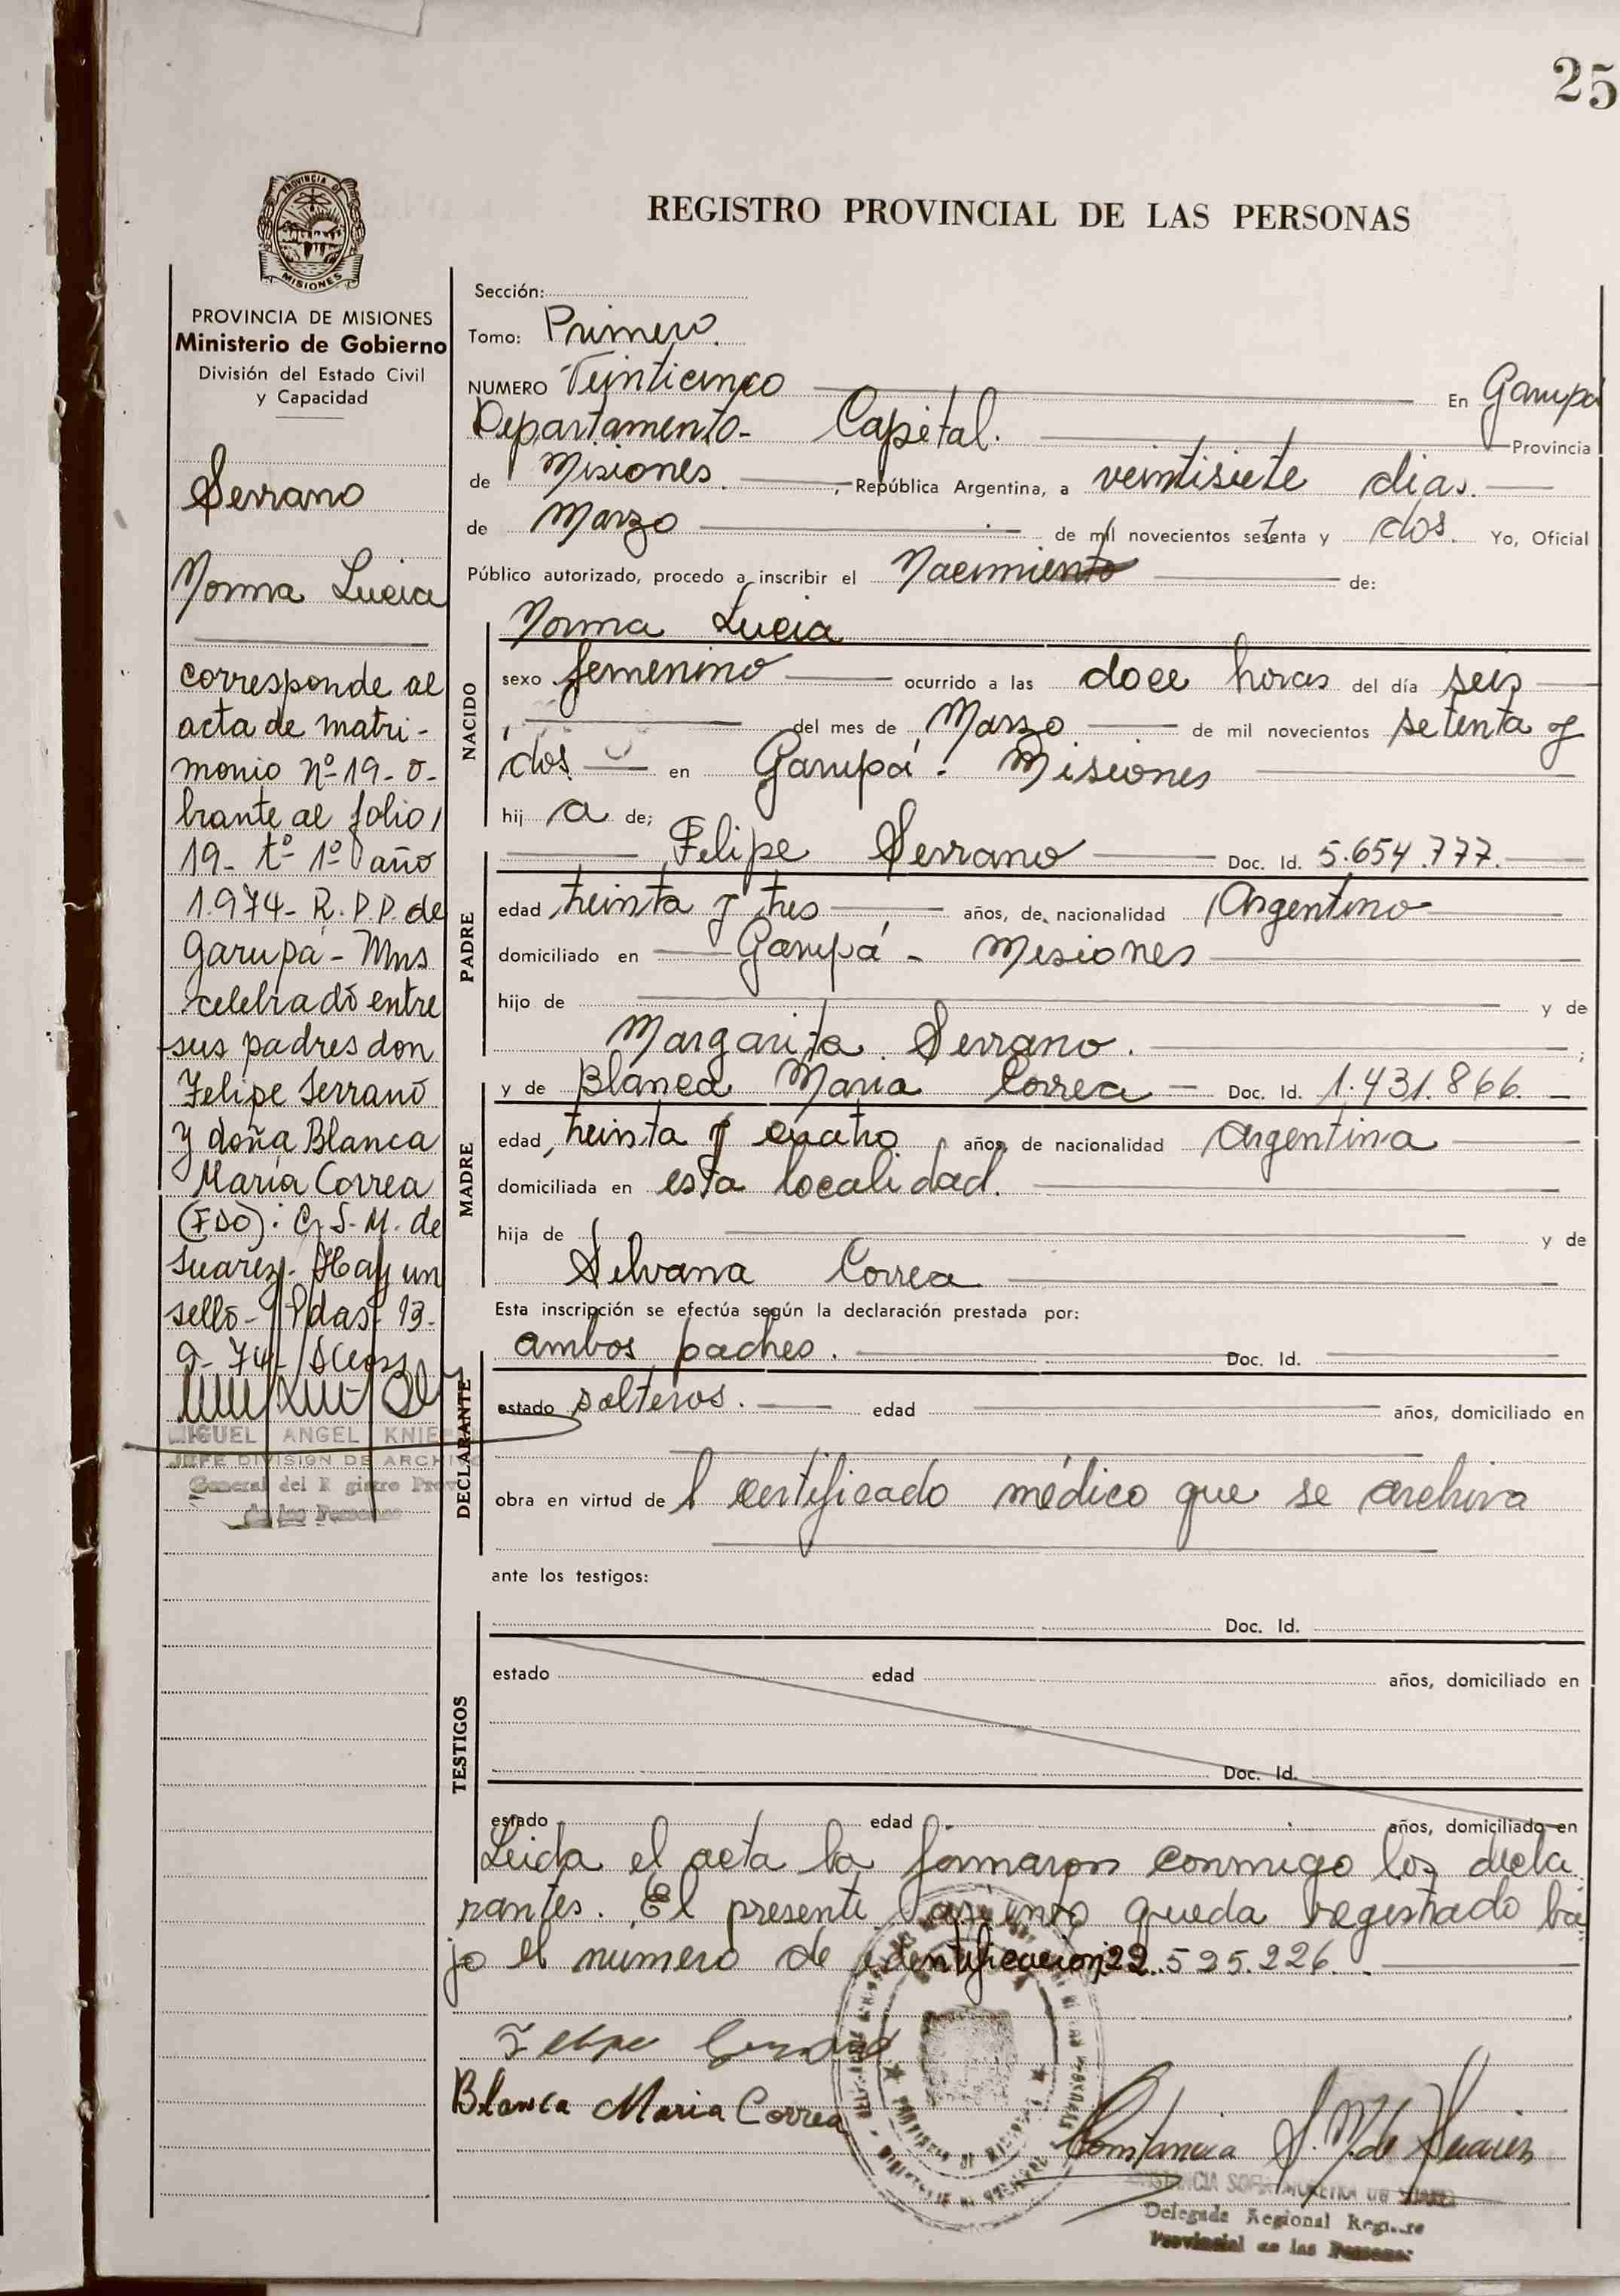 25
REGISTRO PROVINCIAL DE LAS PERSONAS
PROVINCIA DE
MISIONES
PROVINCIA DE MISIONES
Ministerio de Gobierno
División del Estado Civil
y Capacidad
Serrano
Norma Lucia
corresponde al
acta de matri-
monio nº 19- o-
brante al folio
19- tº 1º año
1.974- R.P.P. de
Garupá - Mns
celebrado entre
sus padres don
Felipe Serrano
y doña Blanca
María Correa
(FDO): C. S. M. de
Suarez- Hay un
sello- Pdas- 13-
9- 74-
MIGUEL ANGEL KNIE
JEFE DIVISION DE ARCHIVO
General del R gistro Prov
de las Personas
Sección:
Tomo: Primero.
NUMERO Veinticinco En Garupá
Departamento- Capital. Provincia
de Misiones. , República Argentina, a veintisiete dias.
de Marzo de mil novecientos setenta y dos. Yo, Oficial
Público autorizado, procedo a inscribir el Nacimiento de:
NACIDO
Norma Lucia
sexo femenino ocurrido a las doce horas del día seis
del mes de Marzo de mil novecientos setenta y
dos en Garupá - Misiones
hij a de;
PADRE
Felipe Serrano Doc. Id. 5.654.777.
edad treinta y tres años, de nacionalidad Argentino
domiciliado en Garupá - Misiones
hijo de y de
Margarita Serrano. ;
MADRE
y de Blanca Maria Correa Doc. Id. 1.431.866.
edad treinta y cuatro años, de nacionalidad Argentina
domiciliada en esta localidad.
hija de y de
Silvana Correa
Esta inscripción se efectúa según la declaración prestada por:
DECLARANTE
ambos padres. Doc. Id.
estado solteros. edad años, domiciliado en
obra en virtud de l certificado médico que se archiva
ante los testigos:
TESTIGOS
Doc. Id.
estado edad años, domiciliado en
Doc. Id.
estado edad años, domiciliado en
Leida el acta la firmaron conmigo los decla
rantes. El presente asiento queda registrado ba
jo el número de identificación 22.525.226.
Felipe Serrano
Blanca Maria Correa
Constancia S. M. de Suarez
CONSTANCIA SOFIA MOREYRA DE SUAREZ
Delegada Regional Registro
Provincial de las Personas